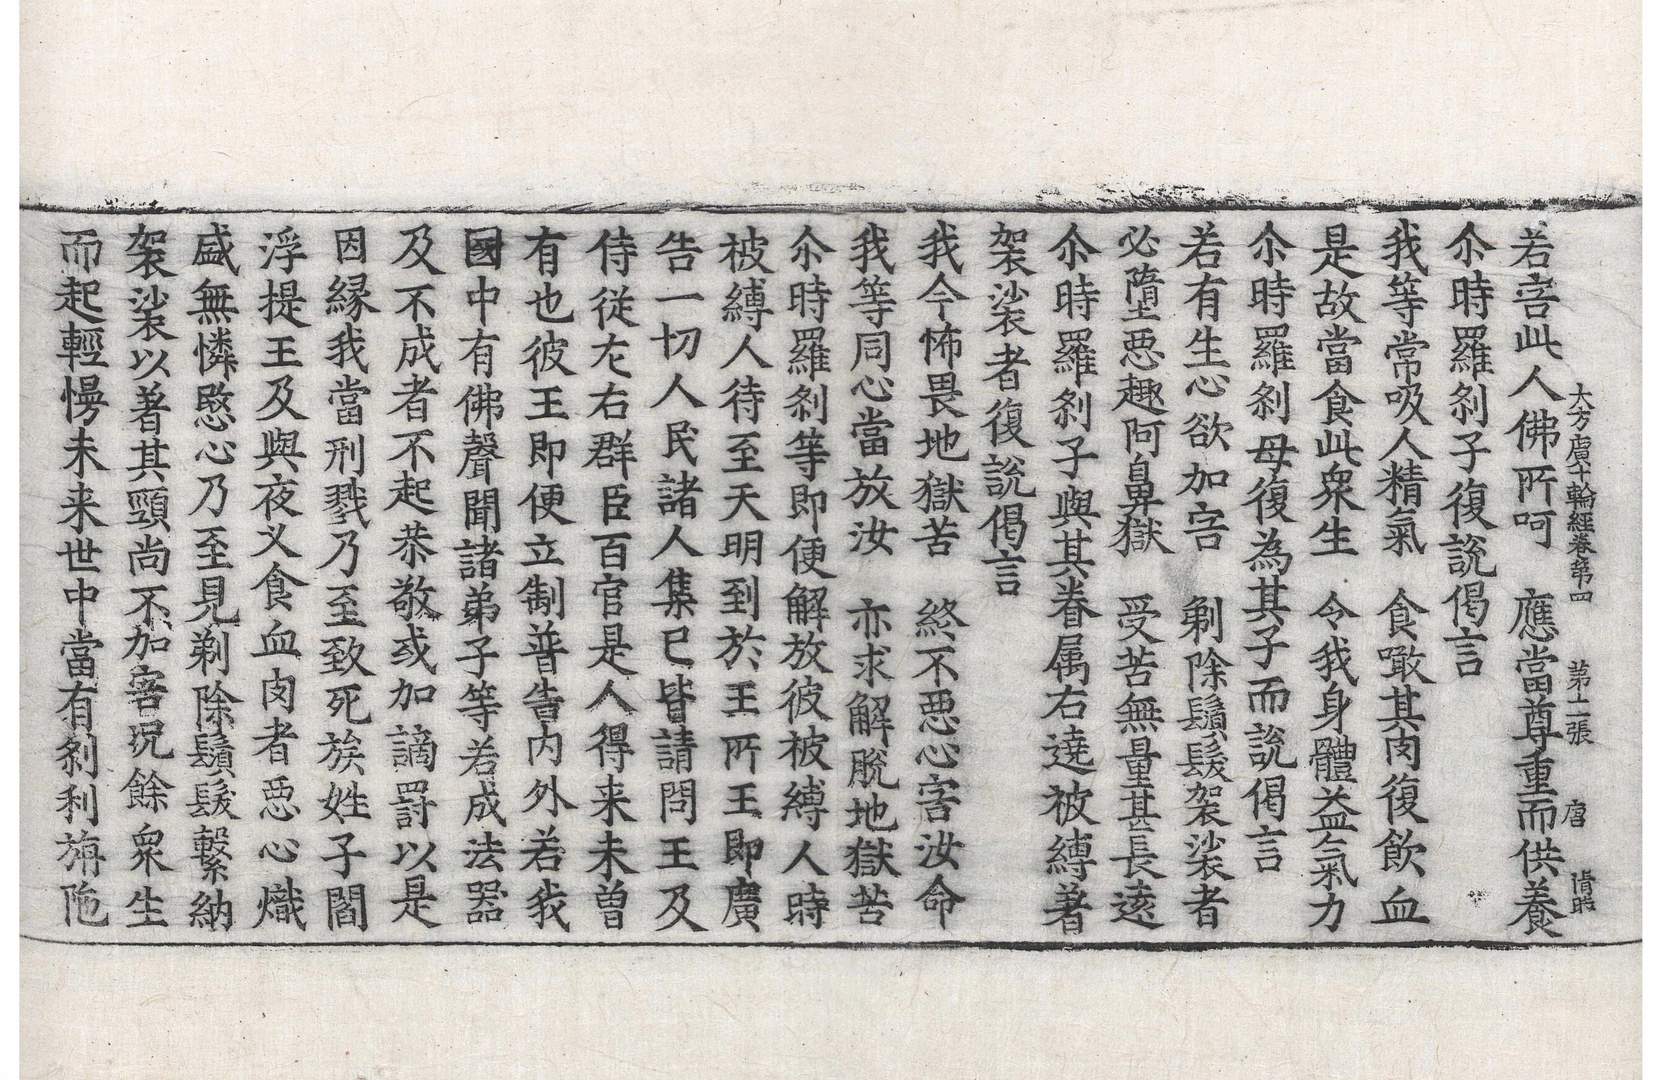 大方廣十輪經卷第四　第十二張　唐
若害此人佛所呵　應當尊重而供養
尒時羅刹子復說偈言
我等常吸人精氣　食噉其肉復飲血
是故當食此衆生　令我身體益氣力
尒時羅刹母復為其子而說偈言
若有生心欲加害　剃除鬚髮袈裟者
必墮惡趣阿鼻獄　受苦無量甚長遠
尒時羅刹子與其眷属右遶被縛著
袈裟者復說偈言
我今怖畏地獄苦　終不惡心害汝命
我等同心當放汝　亦求解脫地獄苦
尒時羅刹等即便解放彼被縛人時
被縛人待至天明到於王所王即廣
告一切人民諸人集已皆請問王及
侍從左右群臣百官是人得来未曾
有也彼王即便立制普告内外若我
國中有佛聲聞諸弟子等若成法器
及不成者不起恭敬或加謫罸以是
因緣我當刑戮乃至致死族姓子閻
浮提王及與夜叉食血肉者惡心熾
盛無憐愍心乃至見剃除鬚髮繫納
袈裟以著其頸尚不加害況餘衆生
而起輕慢未来世中當有刹利旃陁